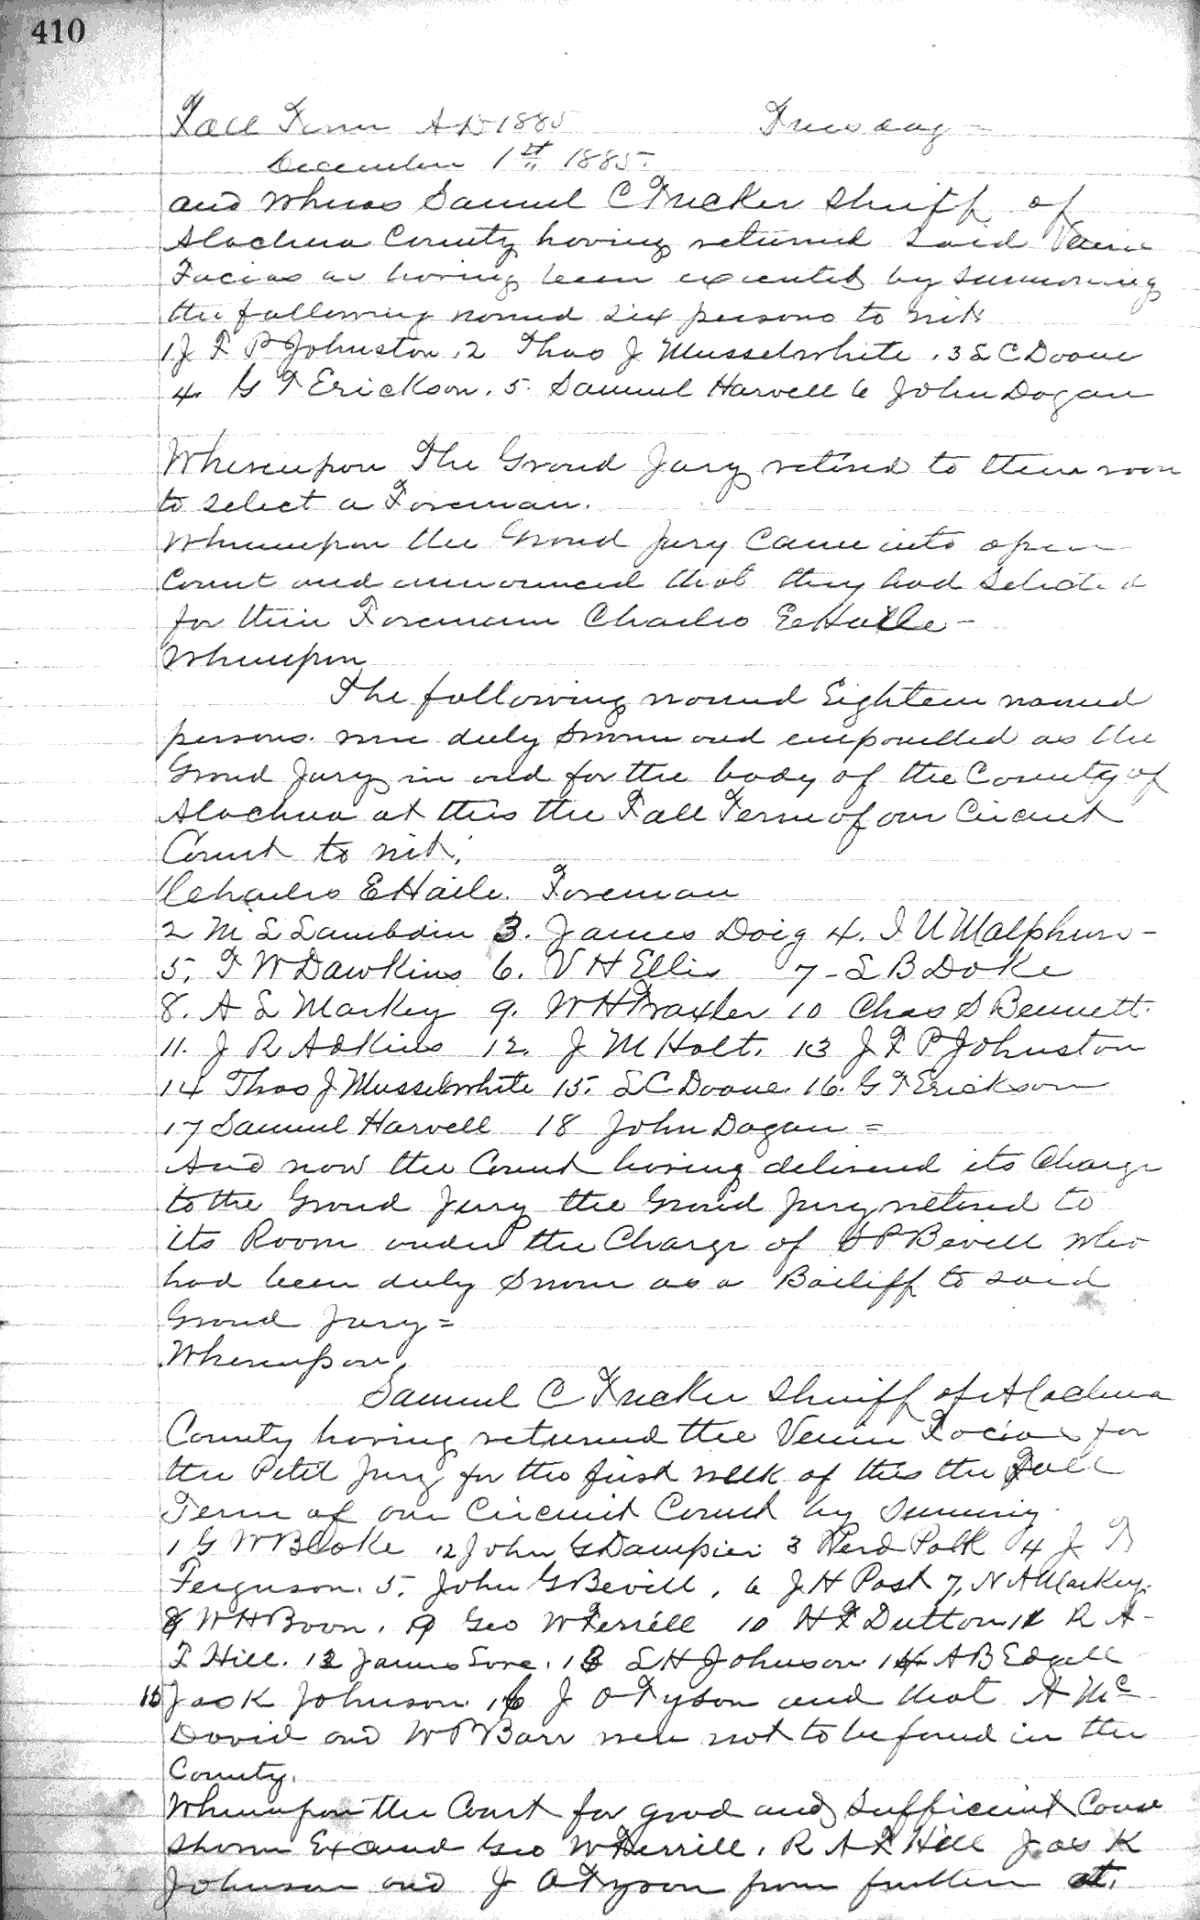 410
Fall Term AD 1885 Tuesday =
December 1st 1885.
and whereas Samuel C Tucker Sheriff of
Alachua County having returned said Venire
Facias as having been executed by summoning
the following named six persons to wit.
1 J F P Johnston . 2 Thos J Musselwhite . 3 L C Doane
4. G T Erickson . 5. Samuel Harvell 6 John Dogan
Whereupon The Grand Jury retired to their room
to select a Foreman.
Whereupon the Grand Jury Came into open
Court and announced that they had Selected
for their Foreman Charles E Haile -
Whereupon
The following named Eighteen named
persons. were duly Sworn and empanelled as the
Grand Jury in and for the body of the County of
Alachua at this the Fall Term of our Circuit
Court to wit:
1 Charles E Haile. Foreman
2 M L Lambdin 3. James Doig 4. J U Malphurs -
5. F W Dawkins 6. V H Ellis 7 - L B Doke
8. A L Markey 9. W H Traxler 10 Chas S Bennett.
11. J R Adkins 12. J M Holt. 13 J F P Johnston
14 Thos J Musselwhite 15. L C Doane 16. G T Erickson
17 Samuel Harvell 18 John Dogan =
And now the Court having delivered its Charge
to the Grand Jury the Grand Jury retired to
its Room under the Charge of P Bevill who
had been duly Sworn as a Bailiff to said
Grand Jury =
Whereupon,
Samuel C Tucker Sheriff of Alachua
County having returned the Venire Facias for
the Petit Jury for the first week of this the Fall
Term of our Circuit Court by
1 G W Bloke 2 John G Dampier 3 Polk 4 J F
Ferguson. 5. John G Bevill . 6 J H Post 7, N A Markey.
8 W H Boon . 9 Geo W Ferrell 10 H F Dutton 11 R A
F Hill. 12 James . 13 L H Johnson 14 A B Edgell
15 Jas K Johnson 16 J O Tyson and that A Mc
David and W P Barr were not to be found in the
County.
Whereupon the Court for good and Sufficient Cause
shown Excused Geo W Ferrell . R A F Hill Jas K
Johnson and J O Tyson from further at.